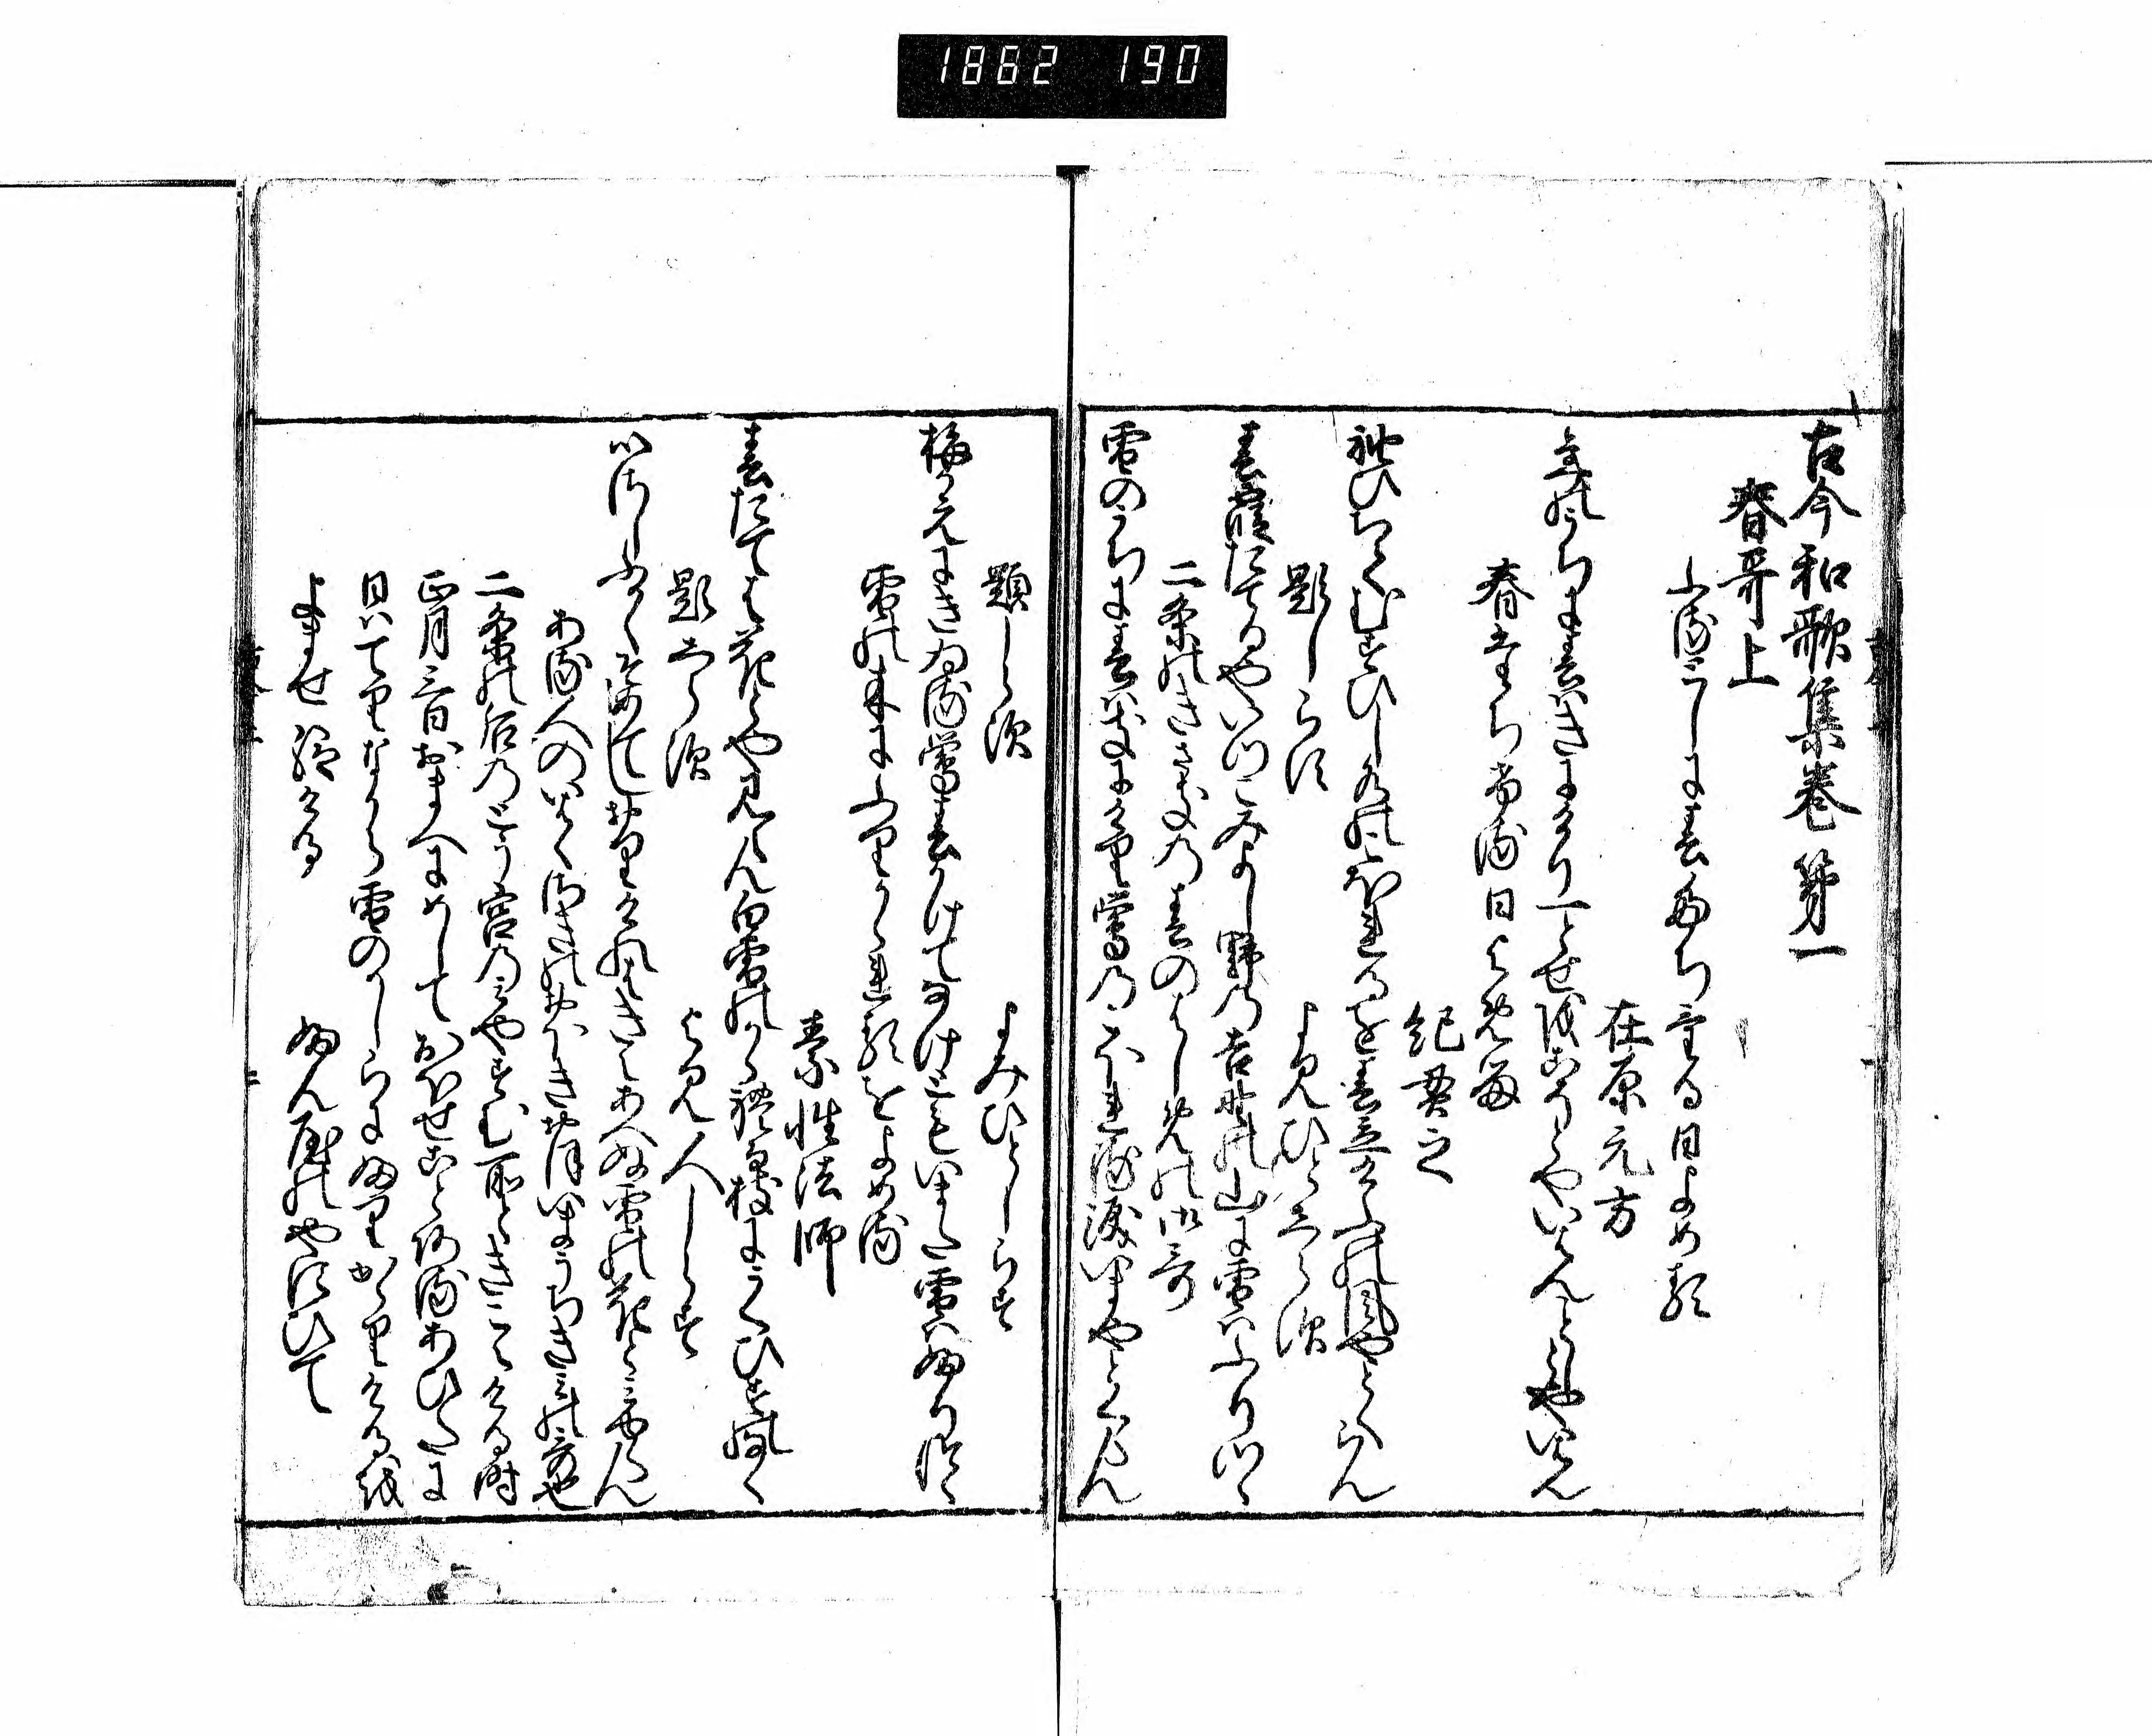 1862 190
古今和歌集巻第一
春哥上
ふるとしに春たちける日よめる
在原元方
年のうちに春はきにけり一とせをこそとやいはんことしとやいはん
春たちける日よめる
紀貫之
袖ひちてむすひし水のこほれるを春立けふの風やとくらん
題しらす
よみ人しらす
春霞たてるやいつこみよし野の吉野の山に雪はふりつゝ
二条のきさきの春のはしめの御哥
雪のうちに春はきにけり鶯のこほれる涙いまやとくらん
題しらす
よみひとしらす
梅かえにきゐる鶯春かけてなけともいまた雪はふりつゝ
雪の木にふりかゝれるをよめる
素性法師
春たては花とや見らん白雪のかゝれる枝にうくひすのなく
題しらす
よみ人しらす
心さしふかくそめてしおりけれはきえあへぬ雪の花と見ゆらん
ある人のいはくさきのおほきおほいまうちきみの哥也
二条の后のとう宮のみやすむ所ときこえける時
正月三日おまへにめしておほせことあるあひたに
日はてりなから雪のかしらにふりかゝりけるを
よませ給ける
ふん屋のやすひて